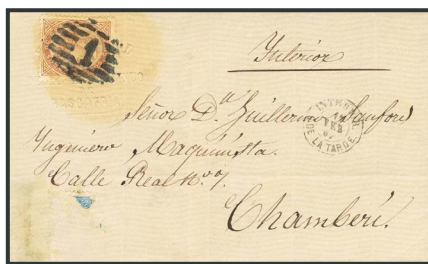 1
Interior
Señor Dn Guillermo Sanford
INTERIOR
12
FEB
DE LA TARDE
Ingeniero Maquinista.
Calle Real nº 7.
Chamberí.